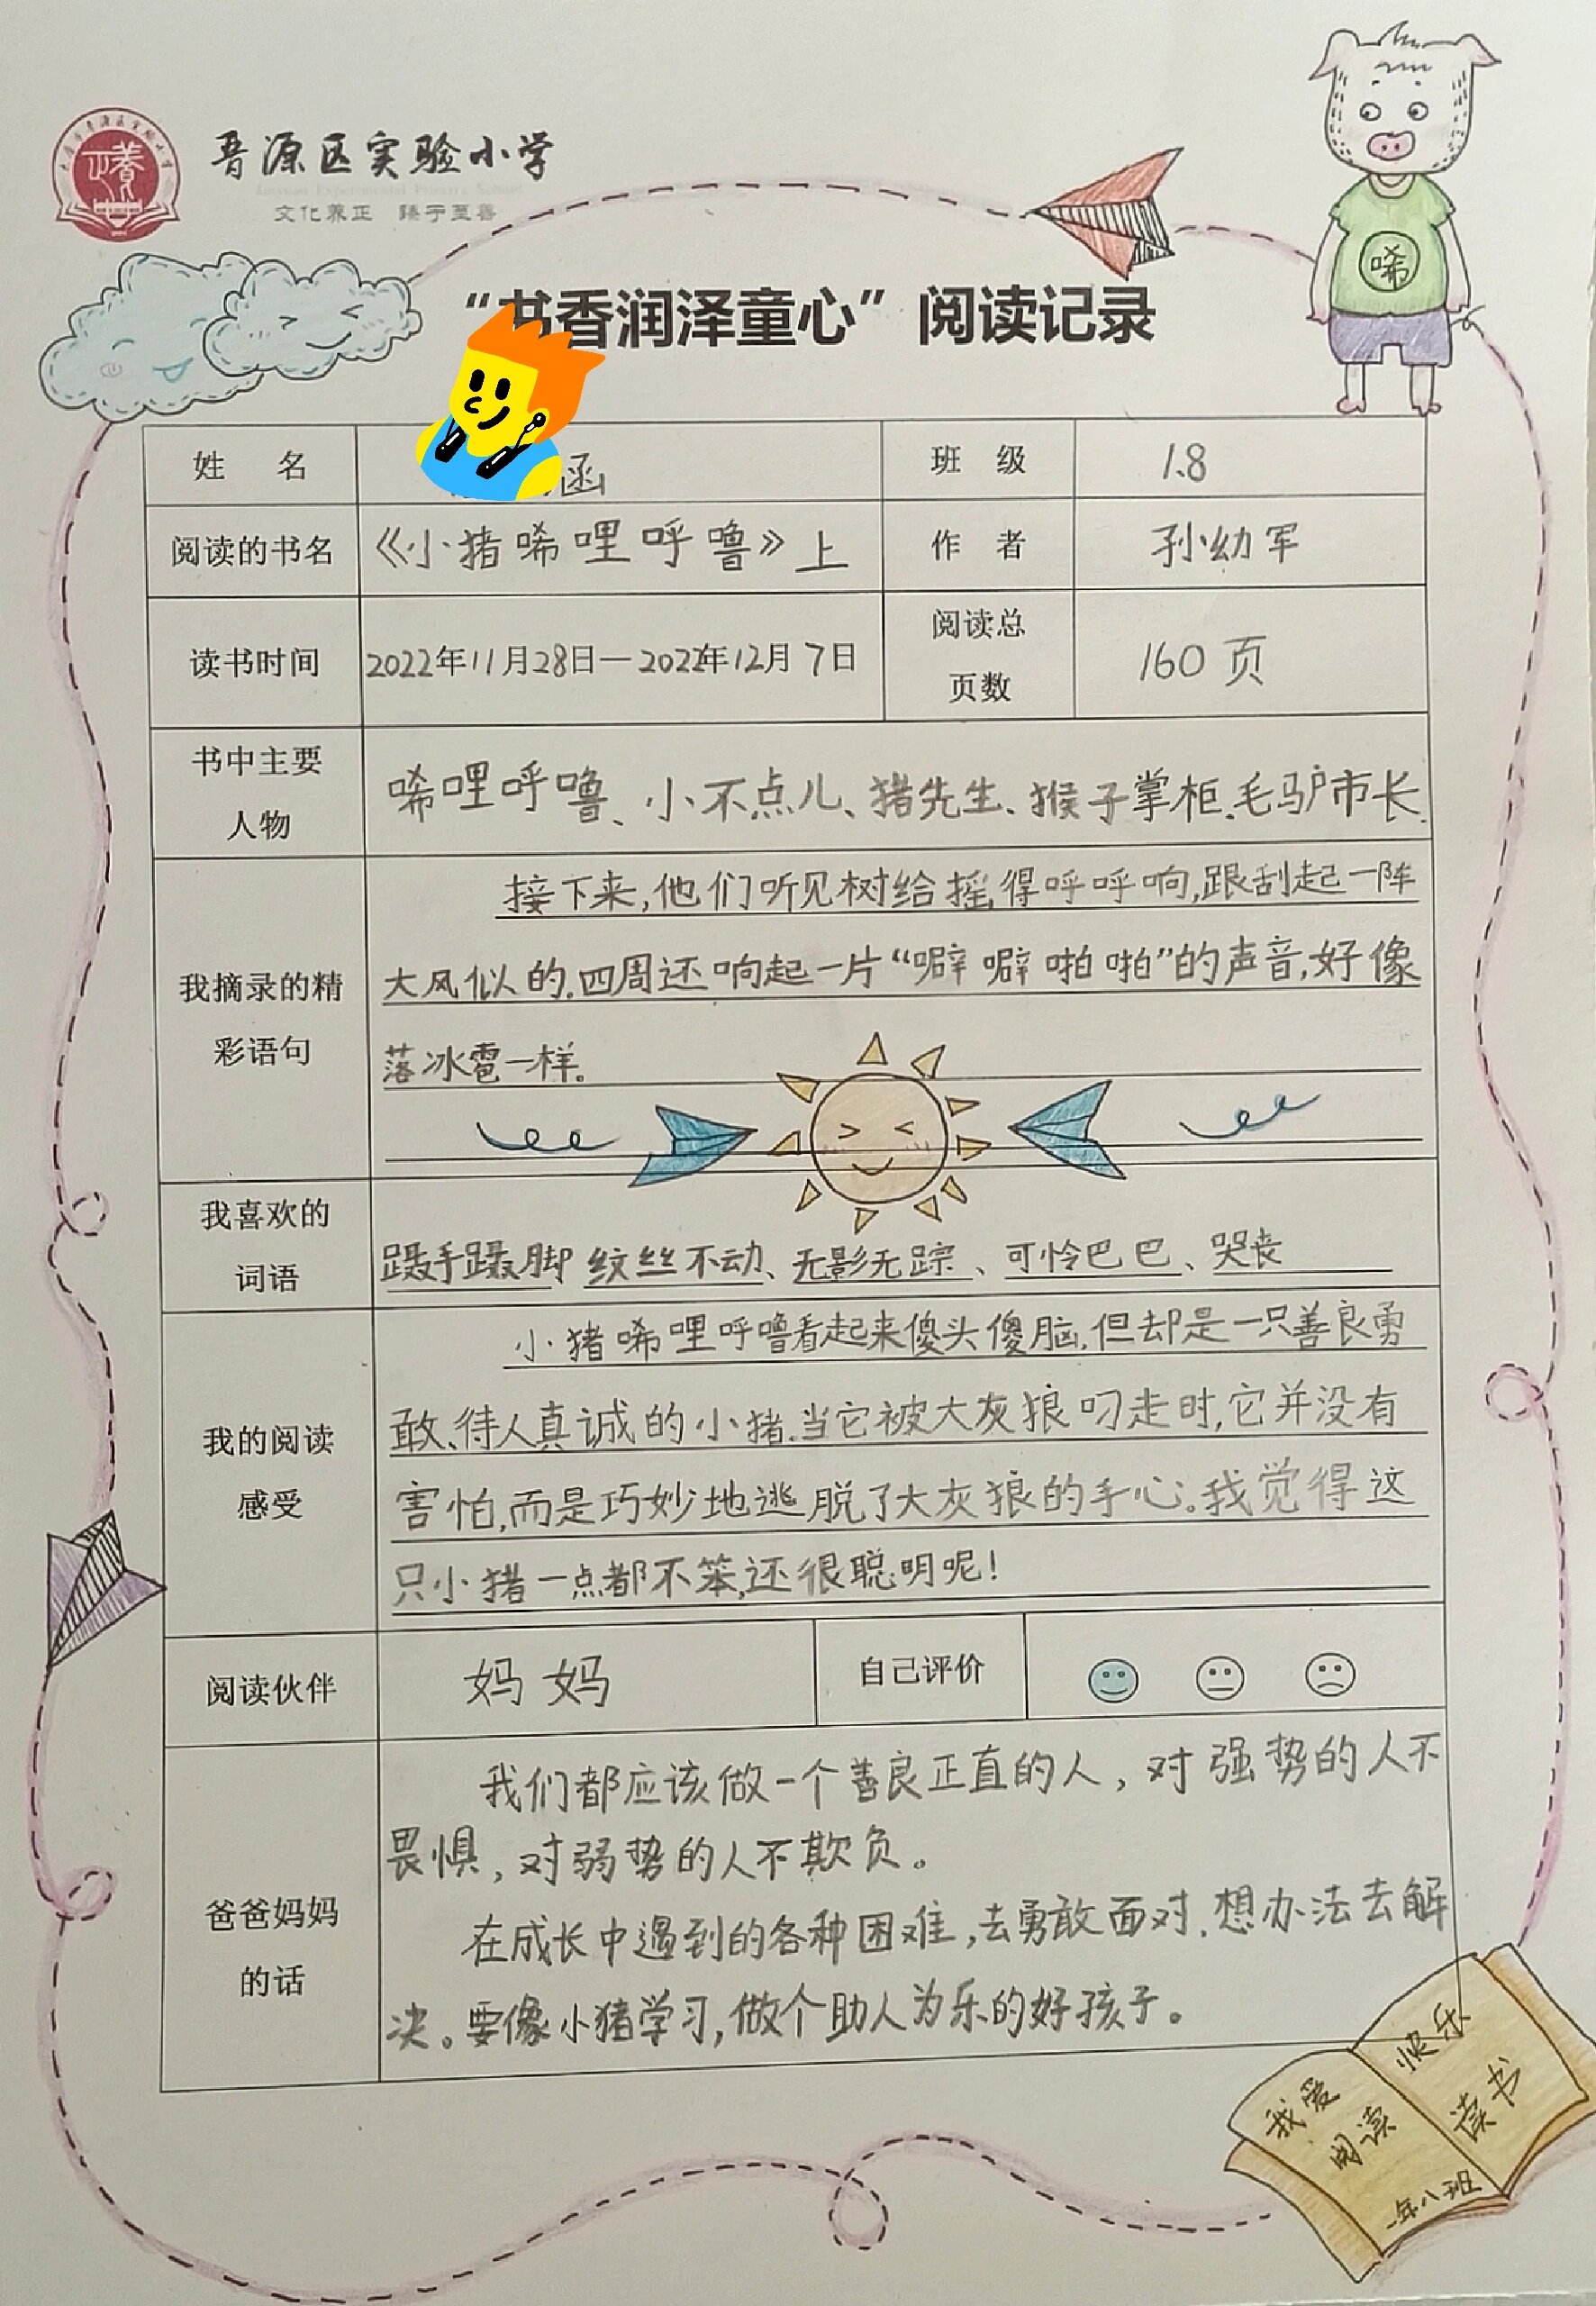 晋源区实验小学
Jinyuan Experimental Primary School
文化养正 臻于至善
“书香润泽童心”阅读记录
唏
姓 名 函 班 级 1.8
阅读的书名 《小猪唏哩呼噜》上 作 者 孙幼军
读书时间 2022年11月28日—2022年12月7日 阅读总页数 160页
书中主要人物 唏哩呼噜、小不点儿、猪先生、猴子掌柜.毛驴市长.
我摘录的精彩语句
接下来,他们听见树给摇得呼呼响,跟刮起一阵
大风似的.四周还响起一片“噼噼啪啪”的声音,好像
落冰雹一样。
我喜欢的词语 蹑手蹑脚 纹丝不动、无影无踪、可怜巴巴、哭丧
我的阅读感受
小猪唏哩呼噜看起来傻头傻脑,但却是一只善良勇
敢、待人真诚的小猪.当它被大灰狼叼走时,它并没有
害怕,而是巧妙地逃脱了大灰狼的手心。我觉得这
只小猪一点都不笨,还很聪明呢!
阅读伙伴 妈妈 自己评价
爸爸妈妈的话
我们都应该做一个善良正直的人，对强势的人不
畏惧，对弱势的人不欺负。
在成长中遇到的各种困难,去勇敢面对.想办法去解
决。要像小猪学习,做个助人为乐的好孩子。
我爱
阅读
快乐
读书
一年八班